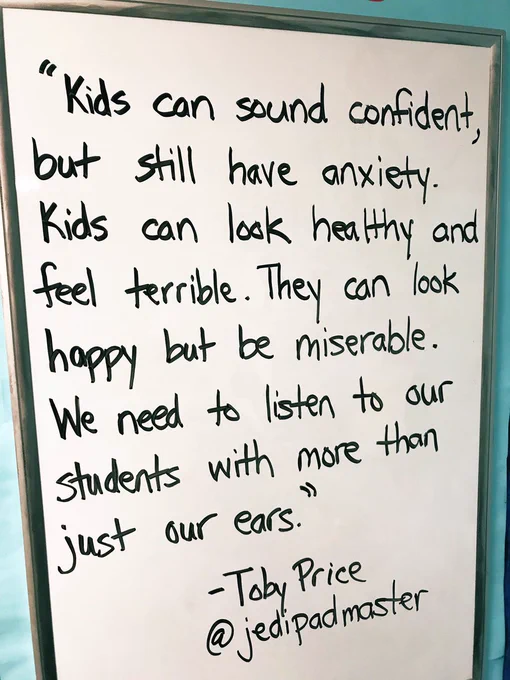 “Kids can sound confident,
but still have anxiety.
Kids can look healthy and
feel terrible. They can look
happy but be miserable.
We need to listen to our
students with more than
just our ears.”
-Toby Price
@jedipadmaster